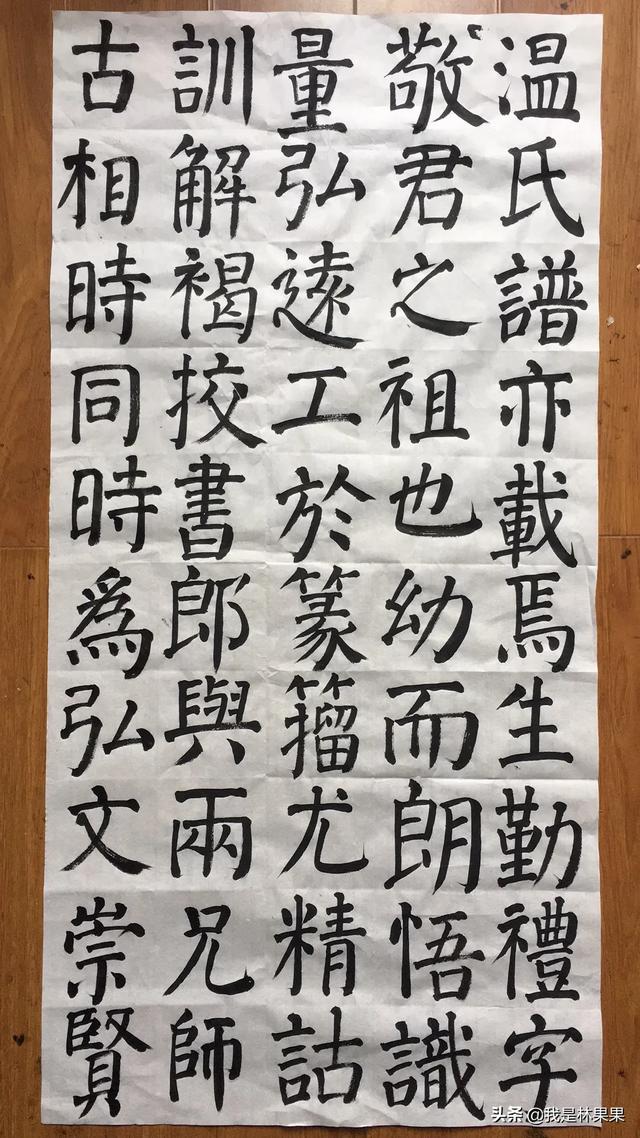 温氏譜亦載焉生勤禮字
敬君之祖也幼而朗悟識
量弘遠工於篆籀尤精詁
訓解褐挍書郎與兩兄師
古相時同時為弘文崇賢
头条 @我是林果果